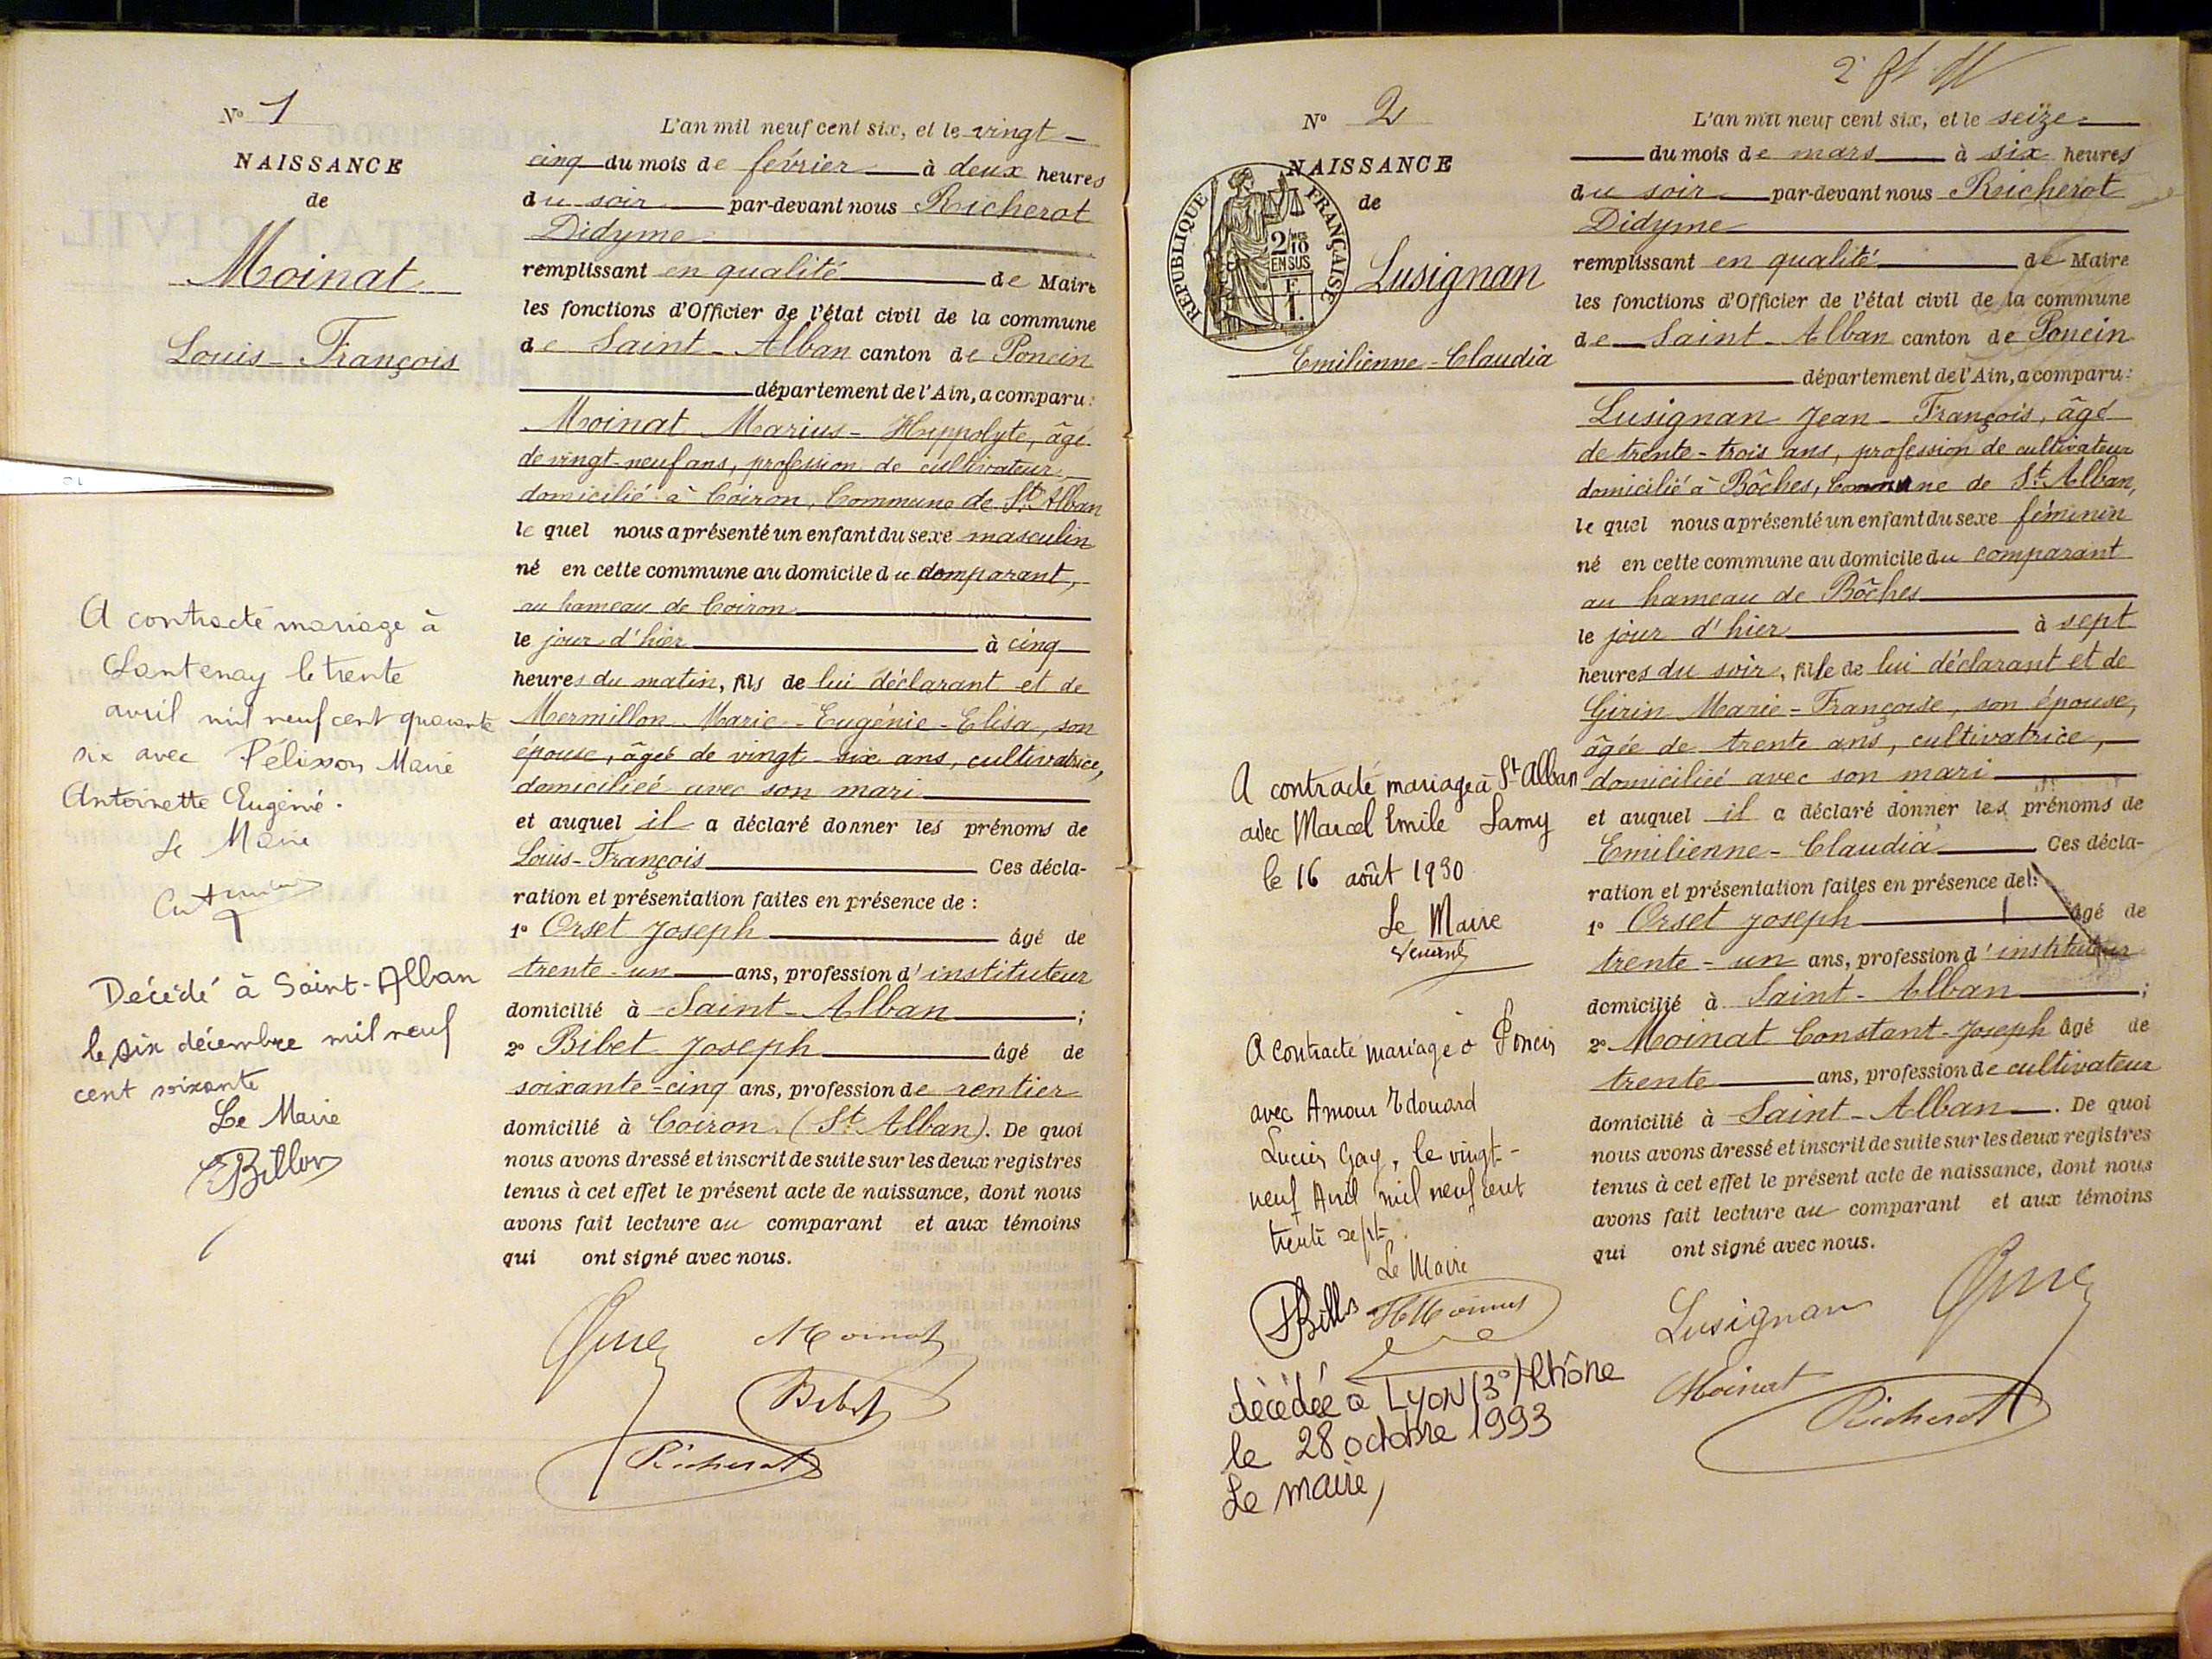 N° 1
NAISSANCE
de
Moinat
Louis-François
A contracté mariage à
Lantenay le trente
avril mil neuf cent quarante
six avec Pélisson Marie
Antoinette Eugénie.
Le Maire
Décédé à Saint-Alban
le six décembre mil neuf
cent soixante
Le Maire
Billon
L'an mil neuf cent six, et le vingt-
cinq du mois de février à deux heures
du soir par-devant nous Richerot
Didyme
remplissant en qualité de Maire
les fonctions d'Officier de l'état civil de la commune
de Saint-Alban canton de Poncin
département de l'Ain, a comparu:
Moinat Marius-Hippolyte, âgé
de vingt-neuf ans, profession de cultivateur
domicilié à Coiron, Commune de St Alban
le quel nous a présenté un enfant du sexe masculin
né en cette commune au domicile du comparant,
au hameau de Coiron
le jour d'hier à cinq
heures du matin, fils de lui déclarant et de
Mermillon Marie-Eugénie-Elisa, son
épouse, âgée de vingt-six ans, cultivatrice,
domiciliée avec son mari
et auquel il a déclaré donner les prénoms de
Louis-François Ces décla-
ration et présentation faites en présence de :
1° Orset Joseph âgé de
trente-un ans, profession d'instituteur
domicilié à Saint-Alban ;
2° Bibet Joseph âgé de
soixante-cinq ans, profession de rentier
domicilié à Coiron (St Alban). De quoi
nous avons dressé et inscrit de suite sur les deux registres
tenus à cet effet le présent acte de naissance, dont nous
avons fait lecture au comparant et aux témoins
qui ont signé avec nous.
Moinat
Bibet
Richerot
N° 2
NAISSANCE
de
REPUBLIQUE FRANÇAISE
2/10
EN SUS
F
1.
Lusignan
Emilienne-Claudia
A contracté mariage à St Alban
avec Marcel Emile Lamy
le 16 août 1930
Le Maire
A contracté mariage à Poncin
avec Amour Edouard
Lucien Gay, le vingt-
neuf Avril mil neuf cent
trente sept.
Le Maire
décédée à Lyon (3°) Rhône
le 28 octobre 1993
Le maire,
L'an mil neuf cent six, et le seize
du mois de mars à six heures
du soir par-devant nous Richerot
Didyme
remplissant en qualité de Maire
les fonctions d'Officier de l'état civil de la commune
de Saint-Alban canton de Poncin
département de l'Ain, a comparu:
Lusignan Jean-François, âgé
de trente-trois ans, profession de cultivateur
domicilié à Bôches, Commune de St Alban,
le quel nous a présenté un enfant du sexe féminin
né en cette commune au domicile du comparant
au hameau de Bôches
le jour d'hier à sept
heures du soir, fille de lui déclarant et de
Girin Marie-Françoise, son épouse,
âgée de trente ans, cultivatrice,
domiciliée avec son mari
et auquel il a déclaré donner les prénoms de
Emilienne-Claudia Ces décla-
ration et présentation faites en présence de :
1° Orset Joseph âgé de
trente-un ans, profession d'instituteur
domicilié à Saint-Alban ;
2° Moinat Constant-Joseph âgé de
trente ans, profession de cultivateur
domicilié à Saint-Alban. De quoi
nous avons dressé et inscrit de suite sur les deux registres
tenus à cet effet le présent acte de naissance, dont nous
avons fait lecture au comparant et aux témoins
qui ont signé avec nous.
Lusignan
Moinat
Richerot